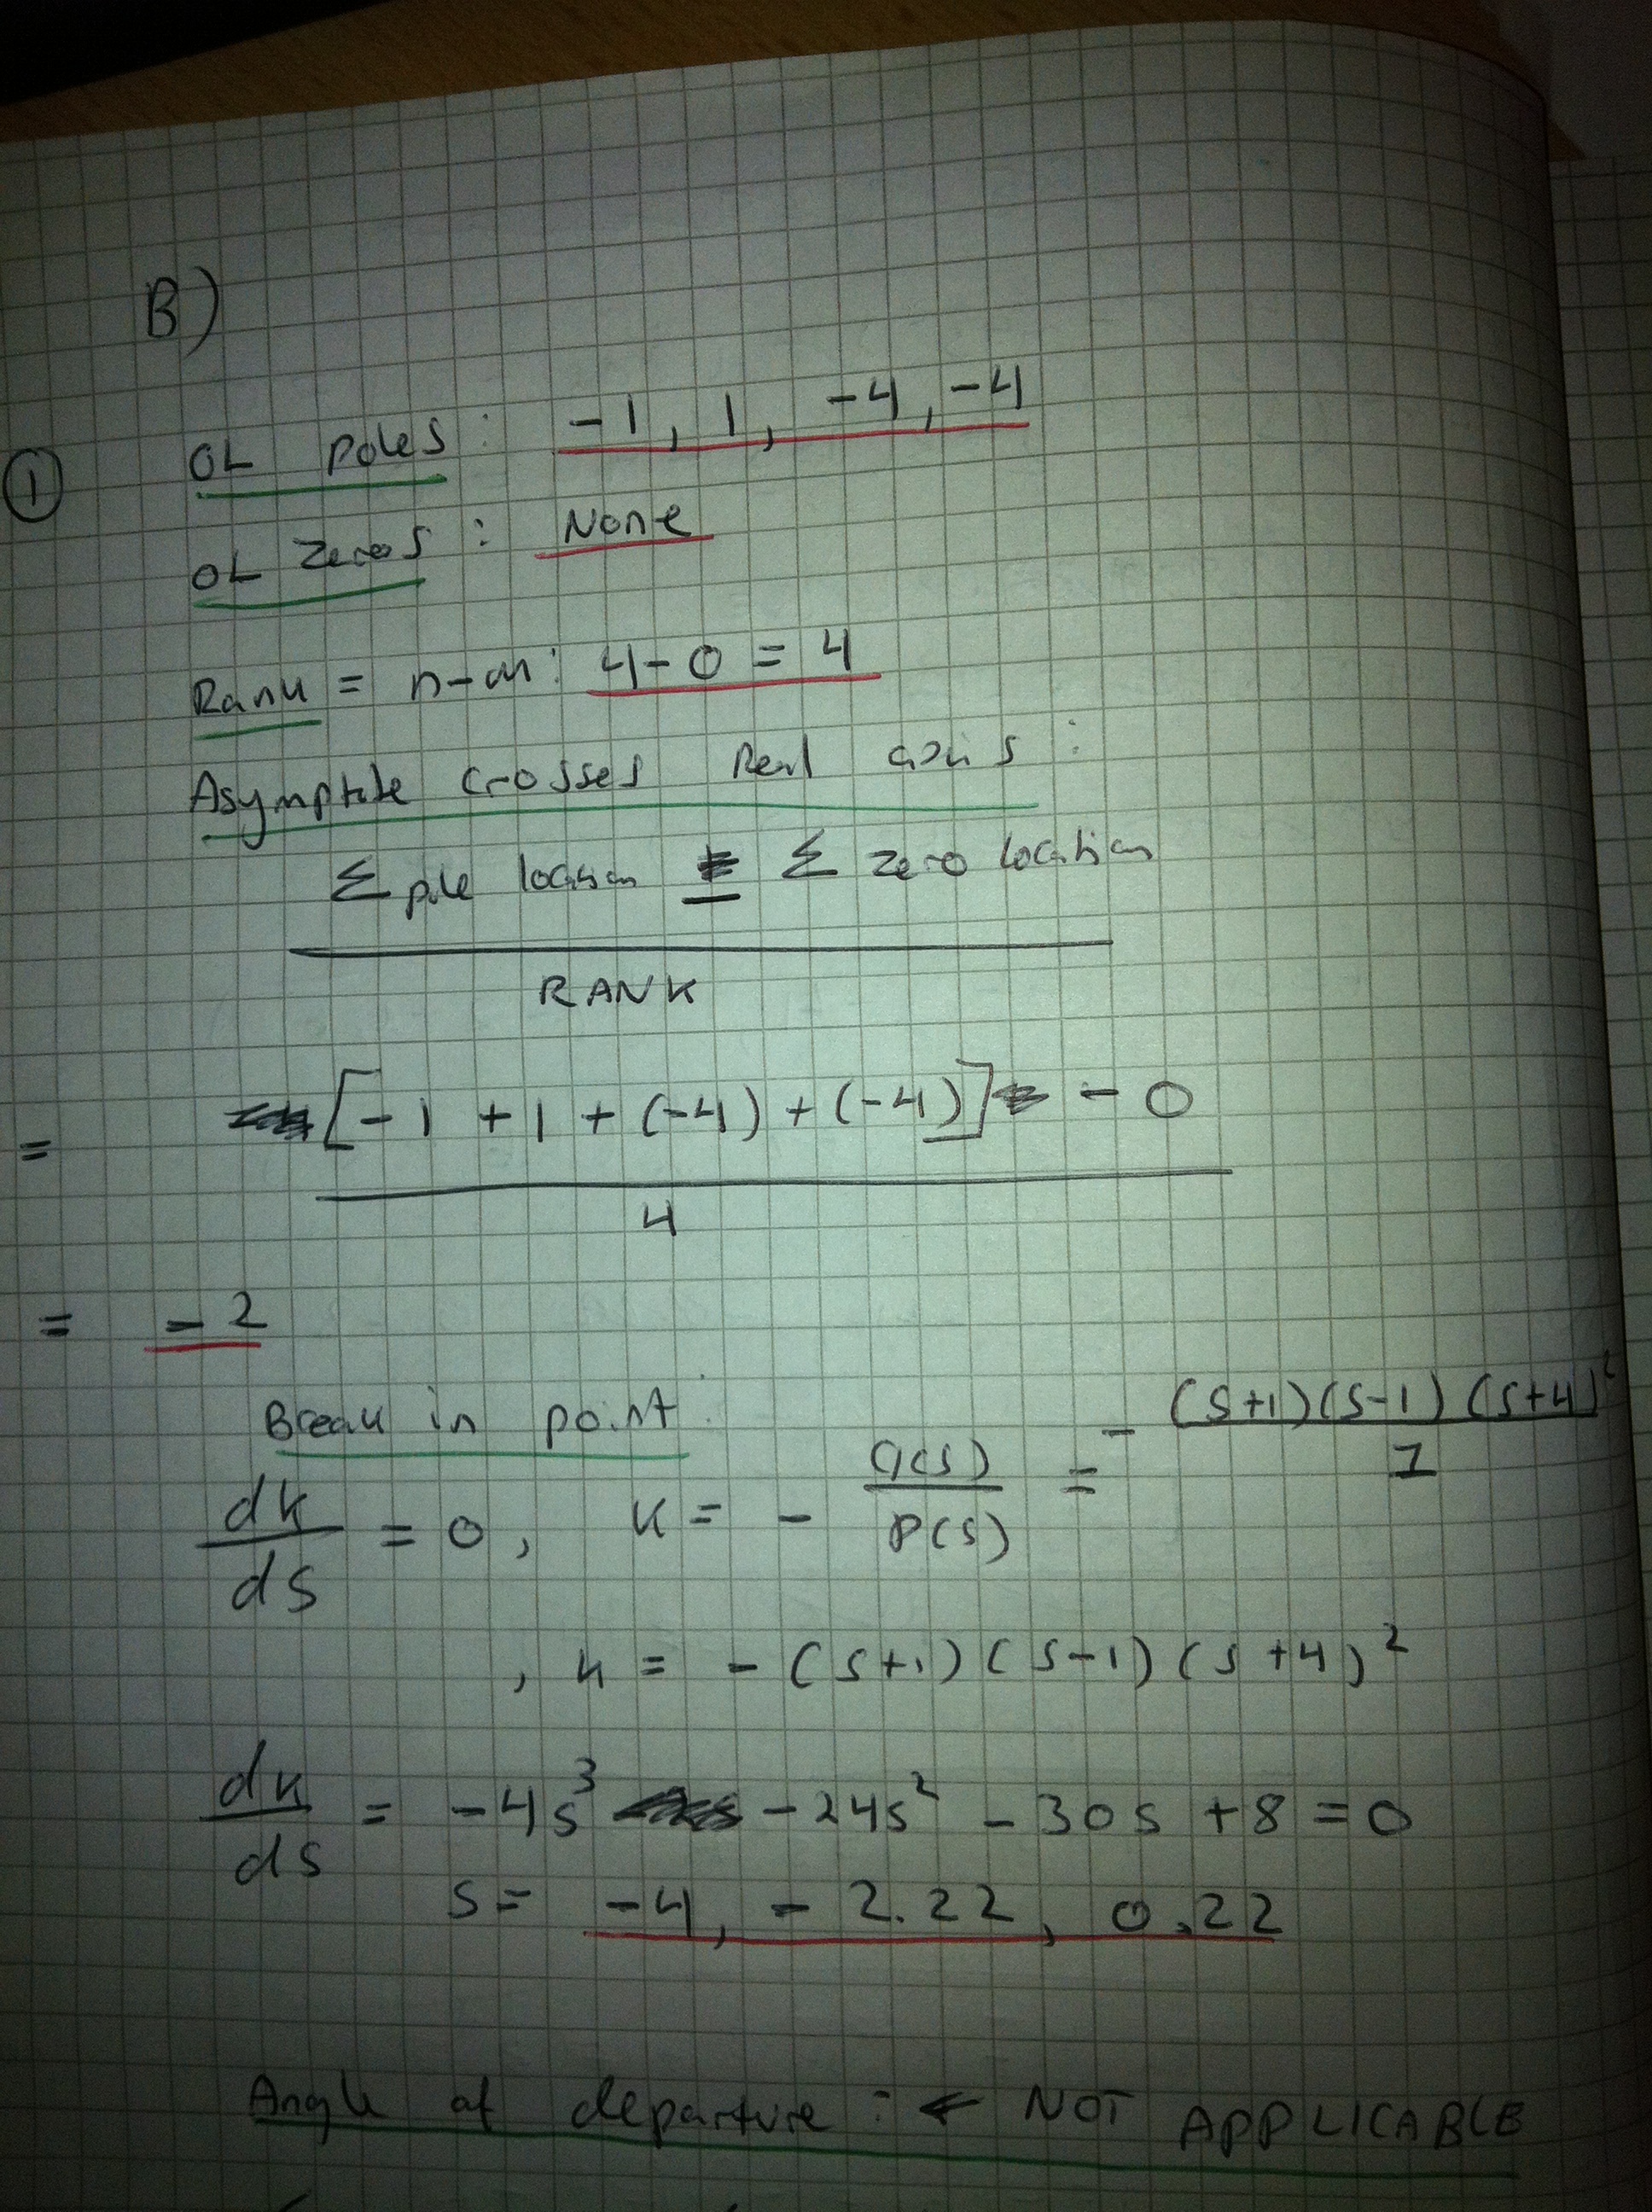 B)
① OL poles : -1, 1, -4, -4
OL zeros : None
Rank = n-m: 4-0 = 4
Asymptote crosses Real axis :
Σ pole location - Σ zero location
RANK
= [-1 +1 + (-4) + (-4)] - 0
4
= -2
Break in point :
dk/ds = 0, K = - Q(s)/P(s) = - (s+1)(s-1)(s+4)²/1
, K = - (s+1)(s-1)(s+4)²
dk/ds = -4s³ -24s² -30s +8 = 0
s = -4, -2.22, 0.22
Angle of departure : ← NOT APPLICABLE